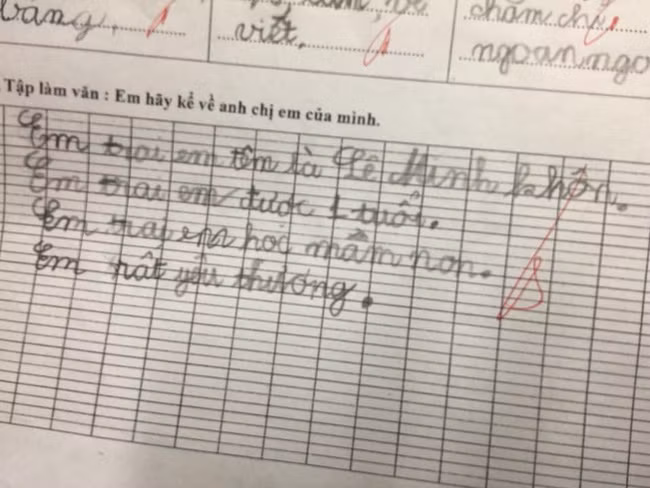 vàng, chăm chỉ,
viết, ngoan ngo
Tập làm văn : Em hãy kể về anh chị em của mình.
Em trai em tên là Lê Minh
Em trai em được 1 tuổi.
Em trai em học mầm non.
Em rất yêu thương.